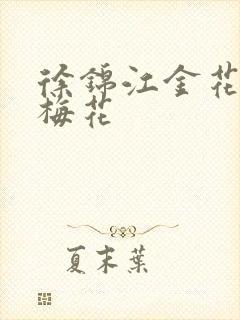 徐锦江金花
梅花
夏末葉